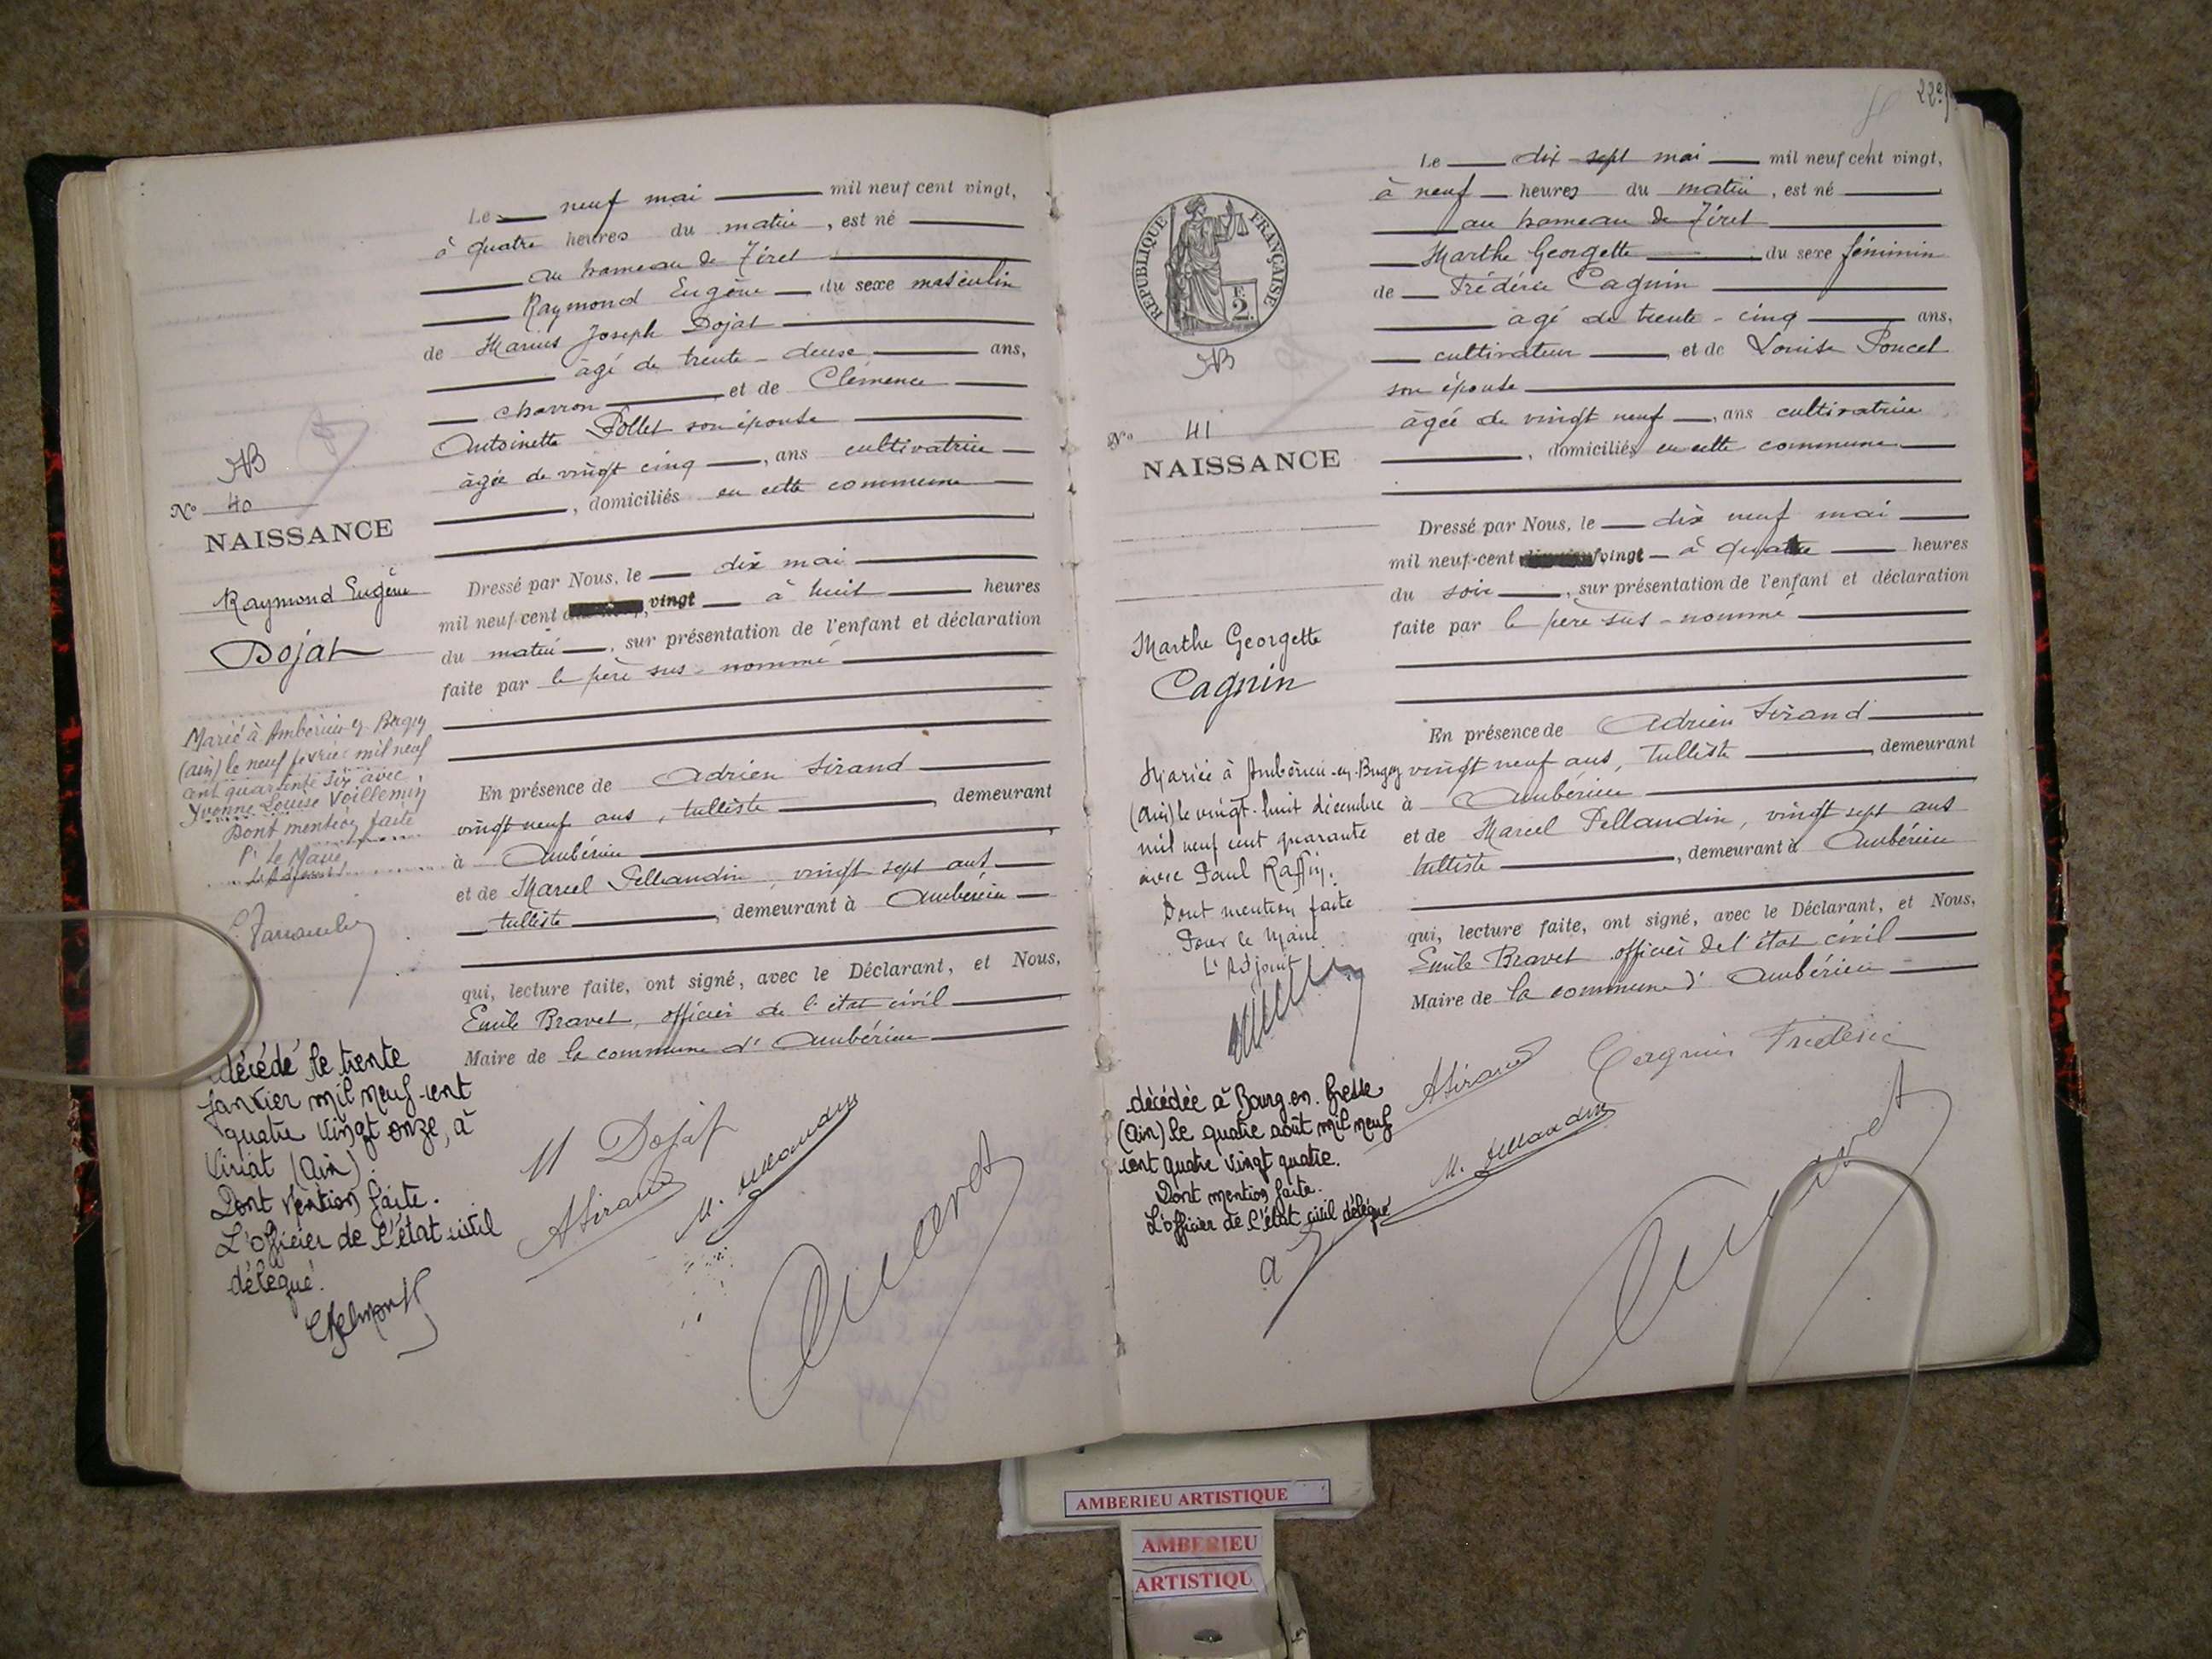 Le neuf mai mil neuf cent vingt,
à quatre heures du matin, est né
au hameau de Tiret
Raymond Eugène du sexe masculin
de Marius Joseph Dojat
âgé de trente-deux ans,
charron et de Clémence
Antoinette Pollet son épouse
âgée de vingt cinq, ans cultivatrice
, domiciliés en cette commune
AB
N° 40
NAISSANCE
Raymond Eugène
Dojat
Dressé par Nous, le dix mai
mil neuf cent vingt à huit heures
du matin, sur présentation de l'enfant et déclaration
faite par le père sus-nommé
Marié à Ambérieu-en-Bugey
(Ain) le neuf février mil neuf
cent quarante six avec
Yvonne Louise Voillemin
Dont mention faite
Pr Le Maire
L'Adjoint
En présence de Adrien Sirand
vingt neuf ans, tulliste, demeurant
à Ambérieu
et de Marcel Pellaudin, vingt sept ans
tulliste, demeurant à Ambérieu
qui, lecture faite, ont signé, avec le Déclarant, et Nous,
Emile Bravet, officier de l'état civil
Maire de la commune d'Ambérieu
décédé le trente
janvier mil neuf cent
quatre vingt onze, à
Viriat (Ain)
Dont mention faite.
L'officier de l'état civil
délégué.
M Dojat
A Sirand
22
Le dix-sept mai mil neuf cent vingt,
à neuf heures du matin, est né
au hameau de Tiret
Marthe Georgette du sexe féminin
de Frédéric Cagnin
âgé de trente-cinq ans,
cultivateur et de Louise Poncet
son épouse
âgée de vingt neuf, ans cultivatrice
, domiciliés en cette commune
REPUBLIQUE FRANÇAISE
F.
2.
AB
N° 41
NAISSANCE
Marthe Georgette
Cagnin
Dressé par Nous, le dix neuf mai
mil neuf cent vingt à quatre heures
du soir, sur présentation de l'enfant et déclaration
faite par le père sus-nommé
Mariée à Ambérieu-en-Bugey
(Ain) le vingt-huit décembre
mil neuf cent quarante
avec Paul Raffin.
Dont mention faite
Pour le Maire
L'Adjoint
En présence de Adrien Sirand
vingt neuf ans, tulliste, demeurant
à Ambérieu
et de Marcel Pellaudin, vingt sept ans
tulliste, demeurant à Ambérieu
qui, lecture faite, ont signé, avec le Déclarant, et Nous,
Emile Bravet officier de l'état civil
Maire de la commune d'Ambérieu
décédée à Bourg-en-Bresse
(Ain) le quatre août mil neuf
cent quatre vingt quatre.
Dont mention faite.
L'officier de l'état civil délégué
A Sirand
Cagnin Frédéric
AMBERIEU ARTISTIQUE
AMBERIEU
ARTISTIQU